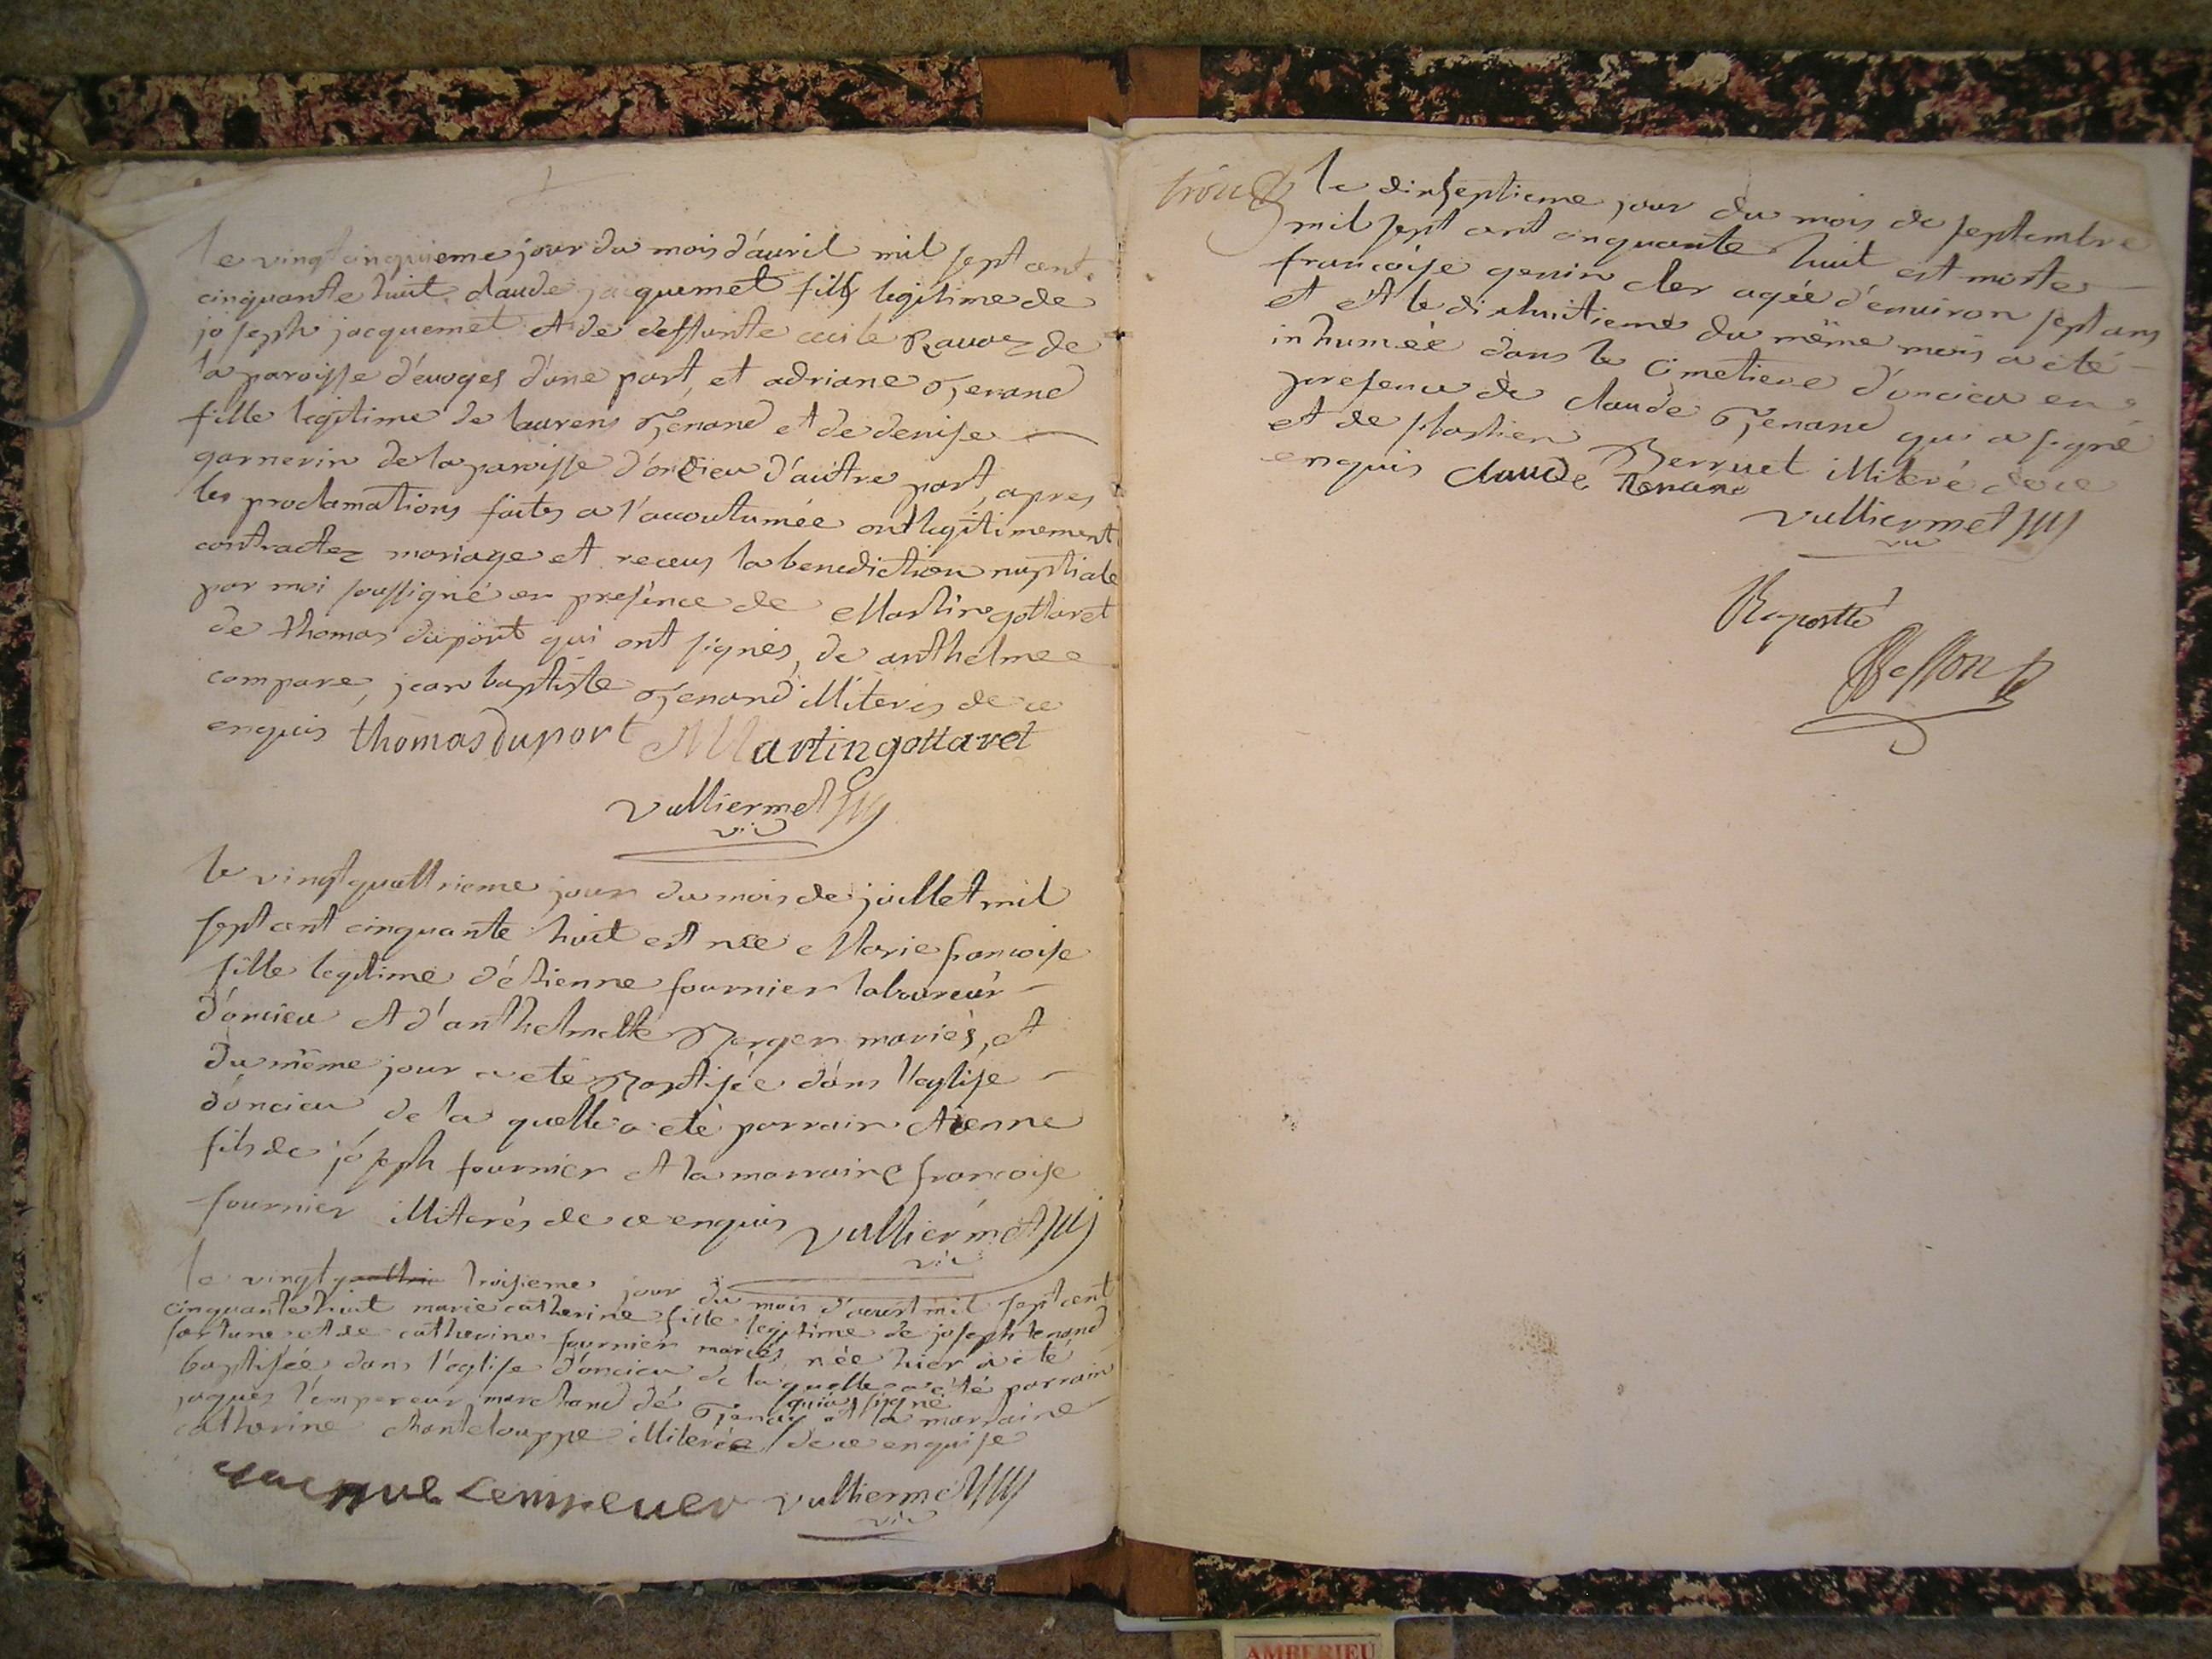 Le vingtcinquieme jour du mois d'avril mil sept cent
cinquante huit claude jacquemet fils legitime de
joseph jacquemet et de deffunte cecile Ravoz de
la paroisse d'évoges d'une part, et adriane Tenand
fille legitime de laurens Tenand et de denise
garnerin de la paroisse d'oncieu d'autre part, apres
les proclamations faites a l'accoutumée ont legitimement
contractez mariage et receus la benediction nuptiale
par moi soussigné en presence de Martin gottaret
de thomas duport qui ont signés, de anthelme
compare, jean baptiste Tenand illiterés de ce
enquis thomas duport Martin gottaret
vulliermet
vic
le vingtquattrieme jour du mois de juillet mil
sept cent cinquante huit est née Marie francoise
fille legitime d'étienne fournier laboureur
d'oncieu et d'anthelmette Berger mariés, et
du même jour a eté Baptisée dans l'eglise
d'oncieu de la quelle a eté parrain etienne
fils de joseph fournier et la marraine francoise
fournier illiterés de ce enquis vulliermet
vic
le vingt quattrie troisieme jour du mois d'aoust mil sept cent
cinquante huit marie catherine fille legitime de joseph tenand
fortune et de catherine fournier mariés, née hier a eté
baptisée dans l'eglise d'oncieu de la quelle a eté parrain
qui a signé
jaques l'empereur marchand de Tenay et la marraine
catherine Chanteloupe illiterée de ce enquise
Jacque Lempeuer vulliermet
vic
trois
le dixseptieme jour du mois de septembre
mil sept cent cinquante huit est morte
francoise genin cler agée d'environ sept ans
et et le dixhuitieme du même mois a eté
inhumée dans le cimetiere d'oncieu en
presence de claude Tenand qui a signé
et de sebastien Berruet illiteré de ce
enquis Claude tenand
vulliermet
vic
Raportté
Besson
AMBERIEU